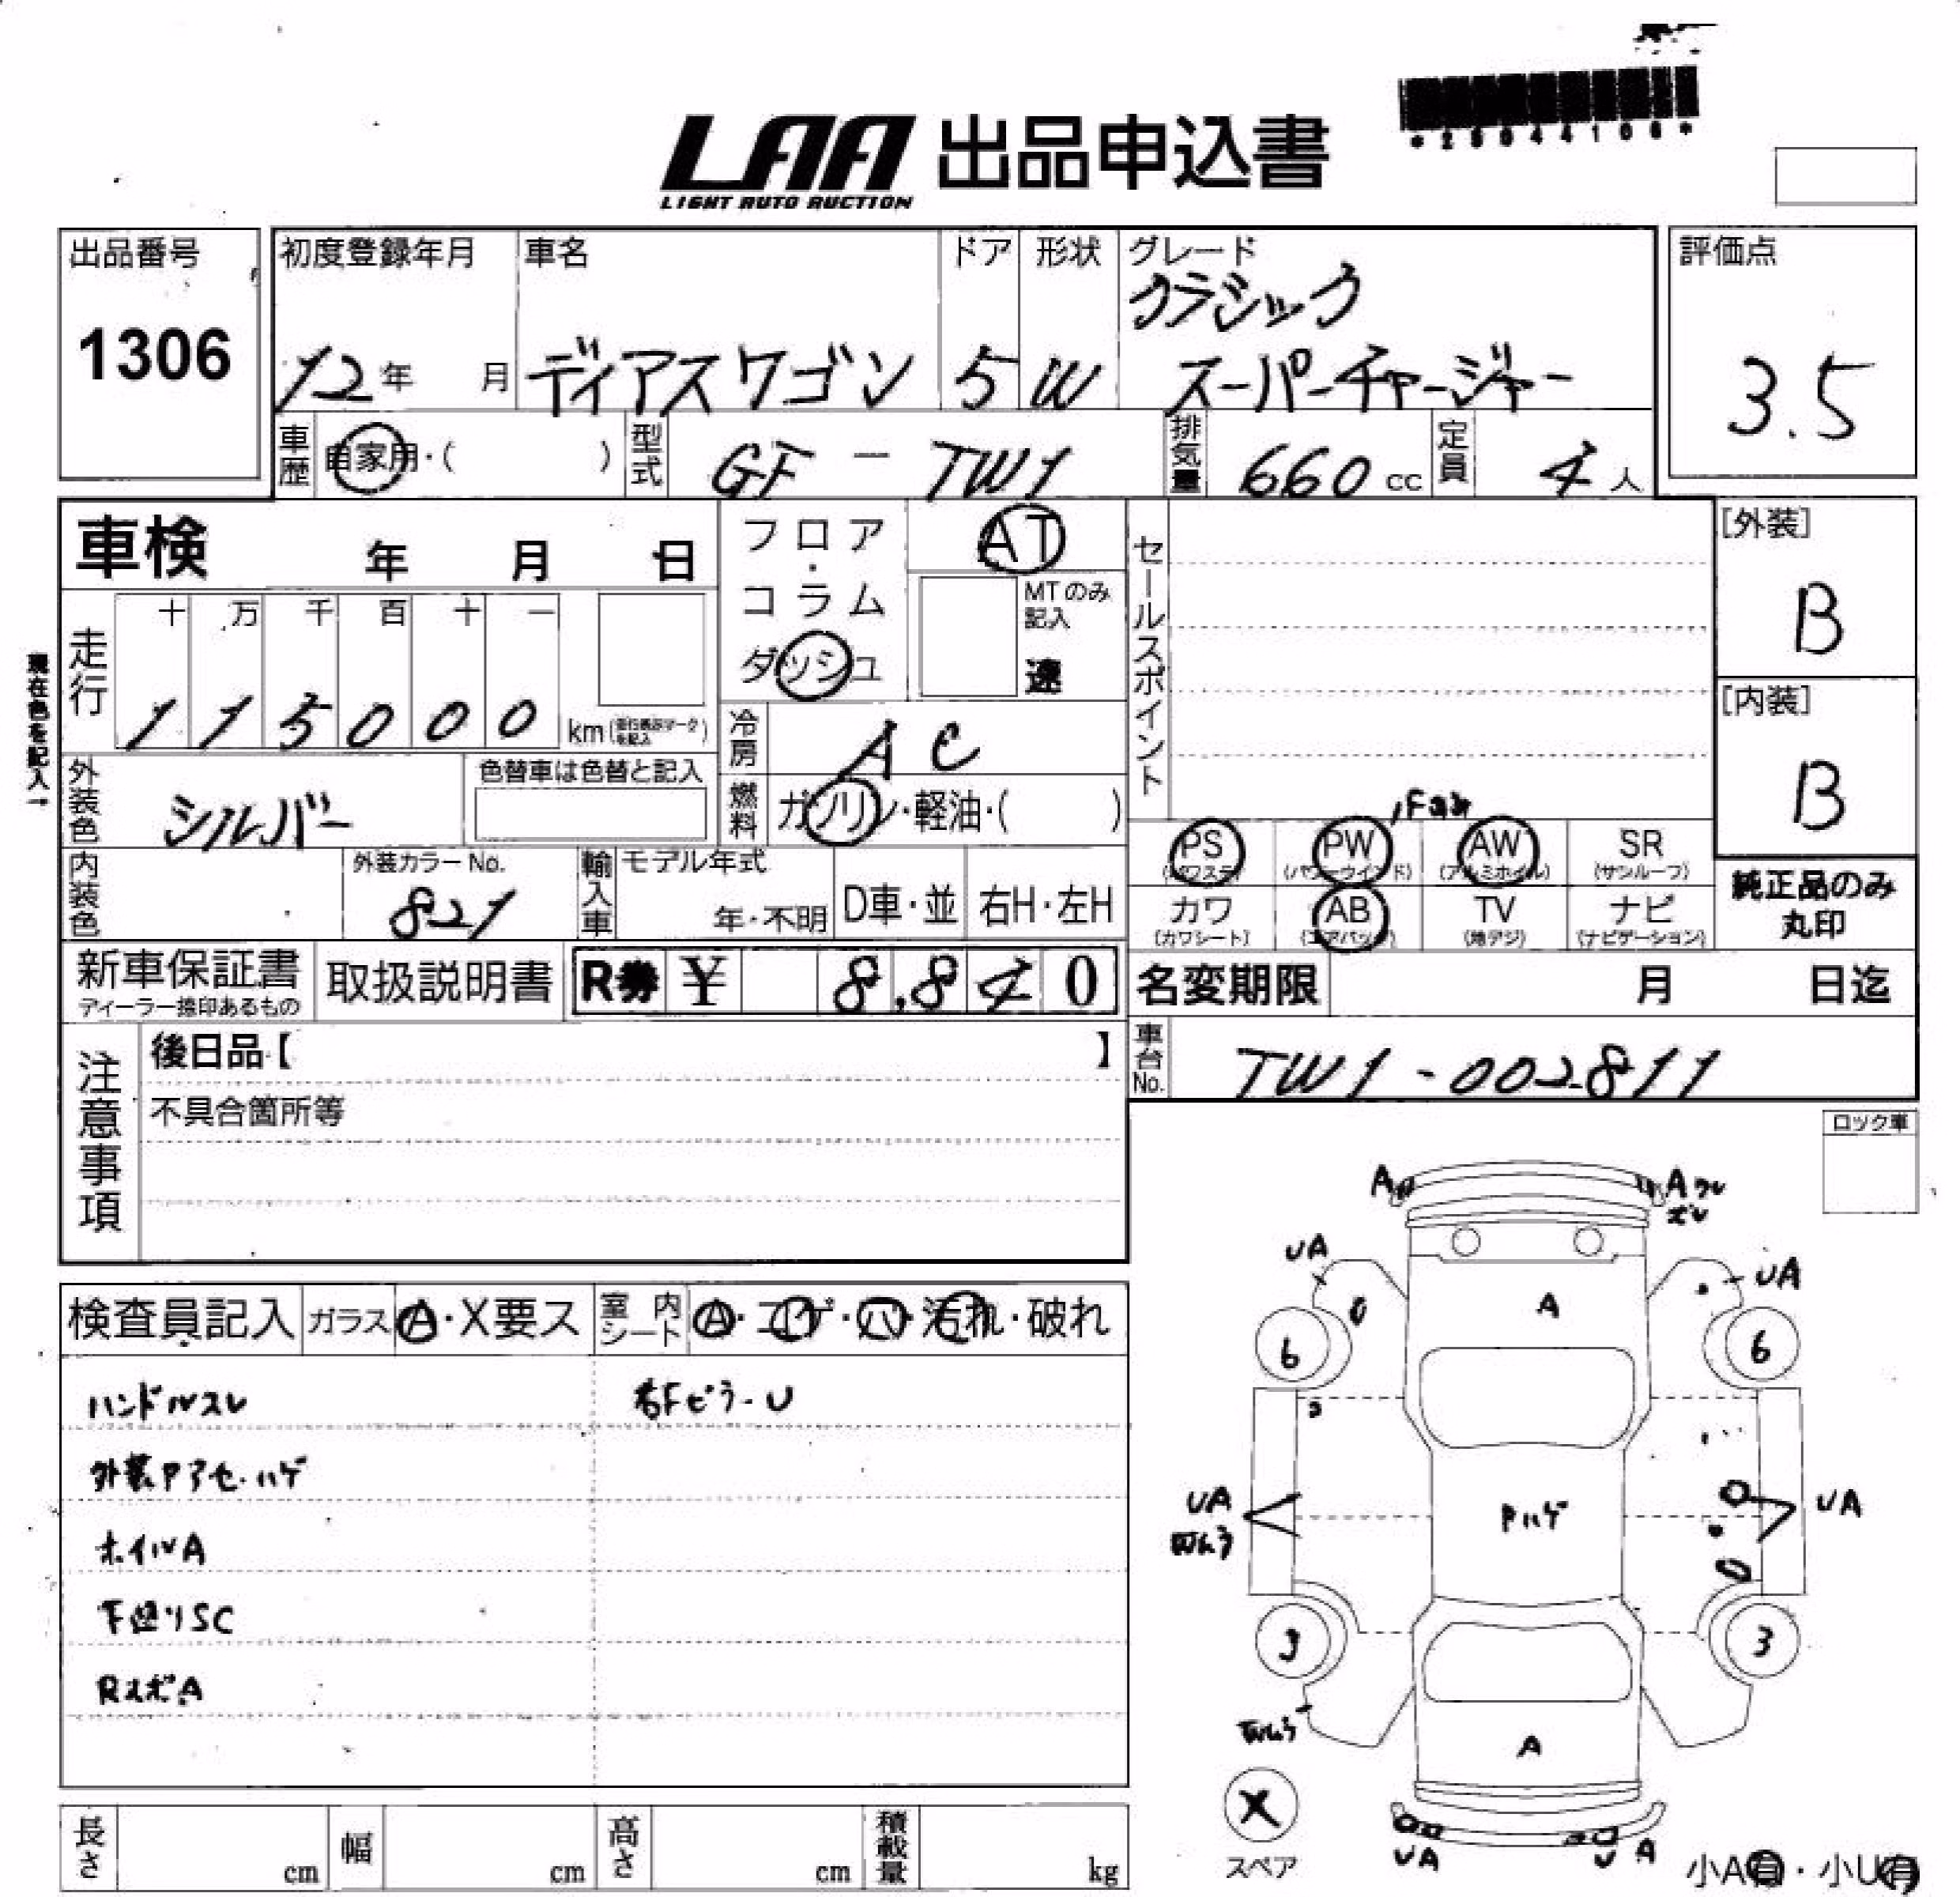 LAA 出品申込書
LIGHT AUTO AUCTION
*25044106*
出品番号
1306
初度登録年月
12年 月
車名
ディアスワゴン
ドア
5
形状
W
グレード
クラシック
スーパーチャージャー
評価点
3.5
車歴 自家用・( )
型式 GF - TW1
排気量 660 cc
定員 4 人
車検 年 月 日
フロア・コラム
ダッシュ
AT
MTのみ記入
速
セールスポイント
[外装]
B
[内装]
B
現在色を記入→
走行
十 万 千 百 十 一
1 1 5 0 0 0 km
冷房 AC
外装色 シルバー
色替車は色替と記入
燃料 ガソリン・軽油・( )
PS PW AW SR
(パワステ) (パワーウインド) (アルミホイル) (サンルーフ)
カワ AB TV ナビ
(カワシート) (エアバッグ) (地デジ) (ナビゲーション)
純正品のみ
丸印
内装色
外装カラーNo.
821
輸入車 モデル年式
年・不明
D車・並
右H・左H
新車保証書
ディーラー捺印あるもの
取扱説明書
R券 ¥ 8,840
名変期限 月 日迄
車台No. TW1-002811
注意事項
後日品【 】
不具合箇所等
ロック車
検査員記入 ガラス A・X要ス 室内シート A・コゲ・穴・汚れ・破れ
ハンドルスレ 右Fピラ-U
外装Pアセ・ハゲ
ホイルA
下廻りSC
RスポA
A
A ワレ
ズレ
UA
UA
A
6
6
UA
UA
Pハゲ
3
3
A
X
スペア
UA
U A
小A有・小U有
長さ cm 幅 cm 高さ cm 積載量 kg